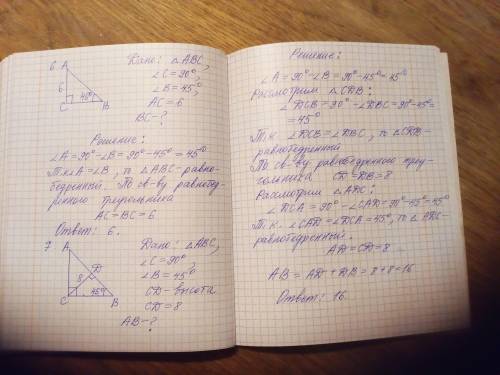 6. A
6
45°
C
B
Дано: △ABC,
∠C = 90°,
∠B = 45°,
AC = 6
BC - ?
Решение:
∠A = 90° - ∠B = 90° - 45° = 45°
Т.к ∠A = ∠B, то △ABC - равно-
бедренный. По св-ву равнобед-
ренного треугольника
AC = BC = 6
Ответ: 6.
7
A
8
D
45°
C
B
Дано: △ABC,
∠C = 90°,
∠B = 45°
CD - высота
CD = 8
AB - ?
Решение:
∠A = 90° - ∠B = 90° - 45° = 45°
Рассмотрим △CDB:
∠DCB = 90° - ∠DBC = 90° - 45° =
= 45°
Т.к. ∠DCB = ∠DBC, то △CDB -
равнобедренный
По св-ву равнобедренного треу-
гольника CD = DB = 8
Рассмотрим △ADC:
∠DCA = 90° - ∠CAD = 90° - 45° = 45°
Т.к. ∠CAD = ∠DCA = 45°, то △ADC -
равнобедренный.
AD = CD = 8
AB = AD + DB = 8 + 8 = 16
Ответ: 16.